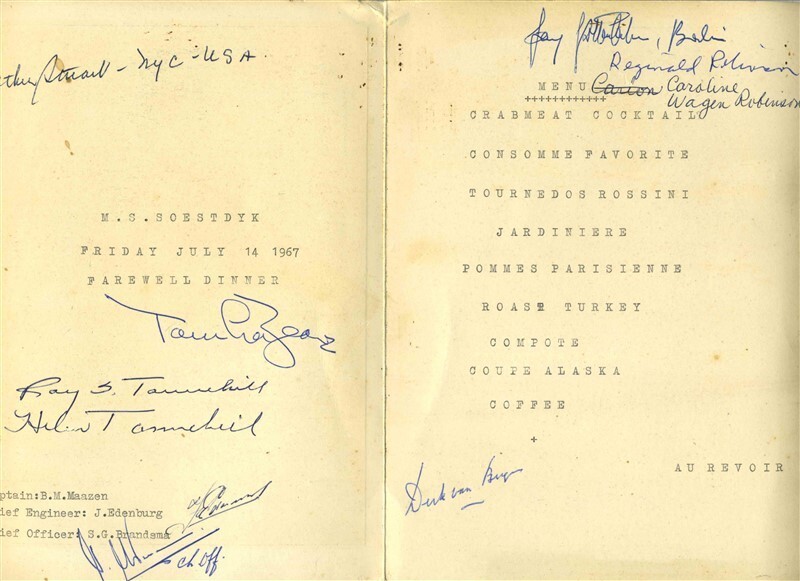 Stuart - NYC - USA
M.S.SOESTDYK
FRIDAY JULY 14 1967
FAREWELL DINNER
Ray S. Tannehill
Helen Tannehill
ptain:B.M.Maazen
ief Engineer: J.Edenburg
ief Officer: S.G.Brandsma
Ch Off.
Berlin
Reginald Robinson
MENU
Caroline
Wagen Robinson
+++++++++++
CRABMEAT COCKTAIL
CONSOMME FAVORITE
TOURNEDOS ROSSINI
JARDINIERE
POMMES PARISIENNE
ROAST TURKEY
COMPOTE
COUPE ALASKA
COFFEE
+
AU REVOIR
Dirk van